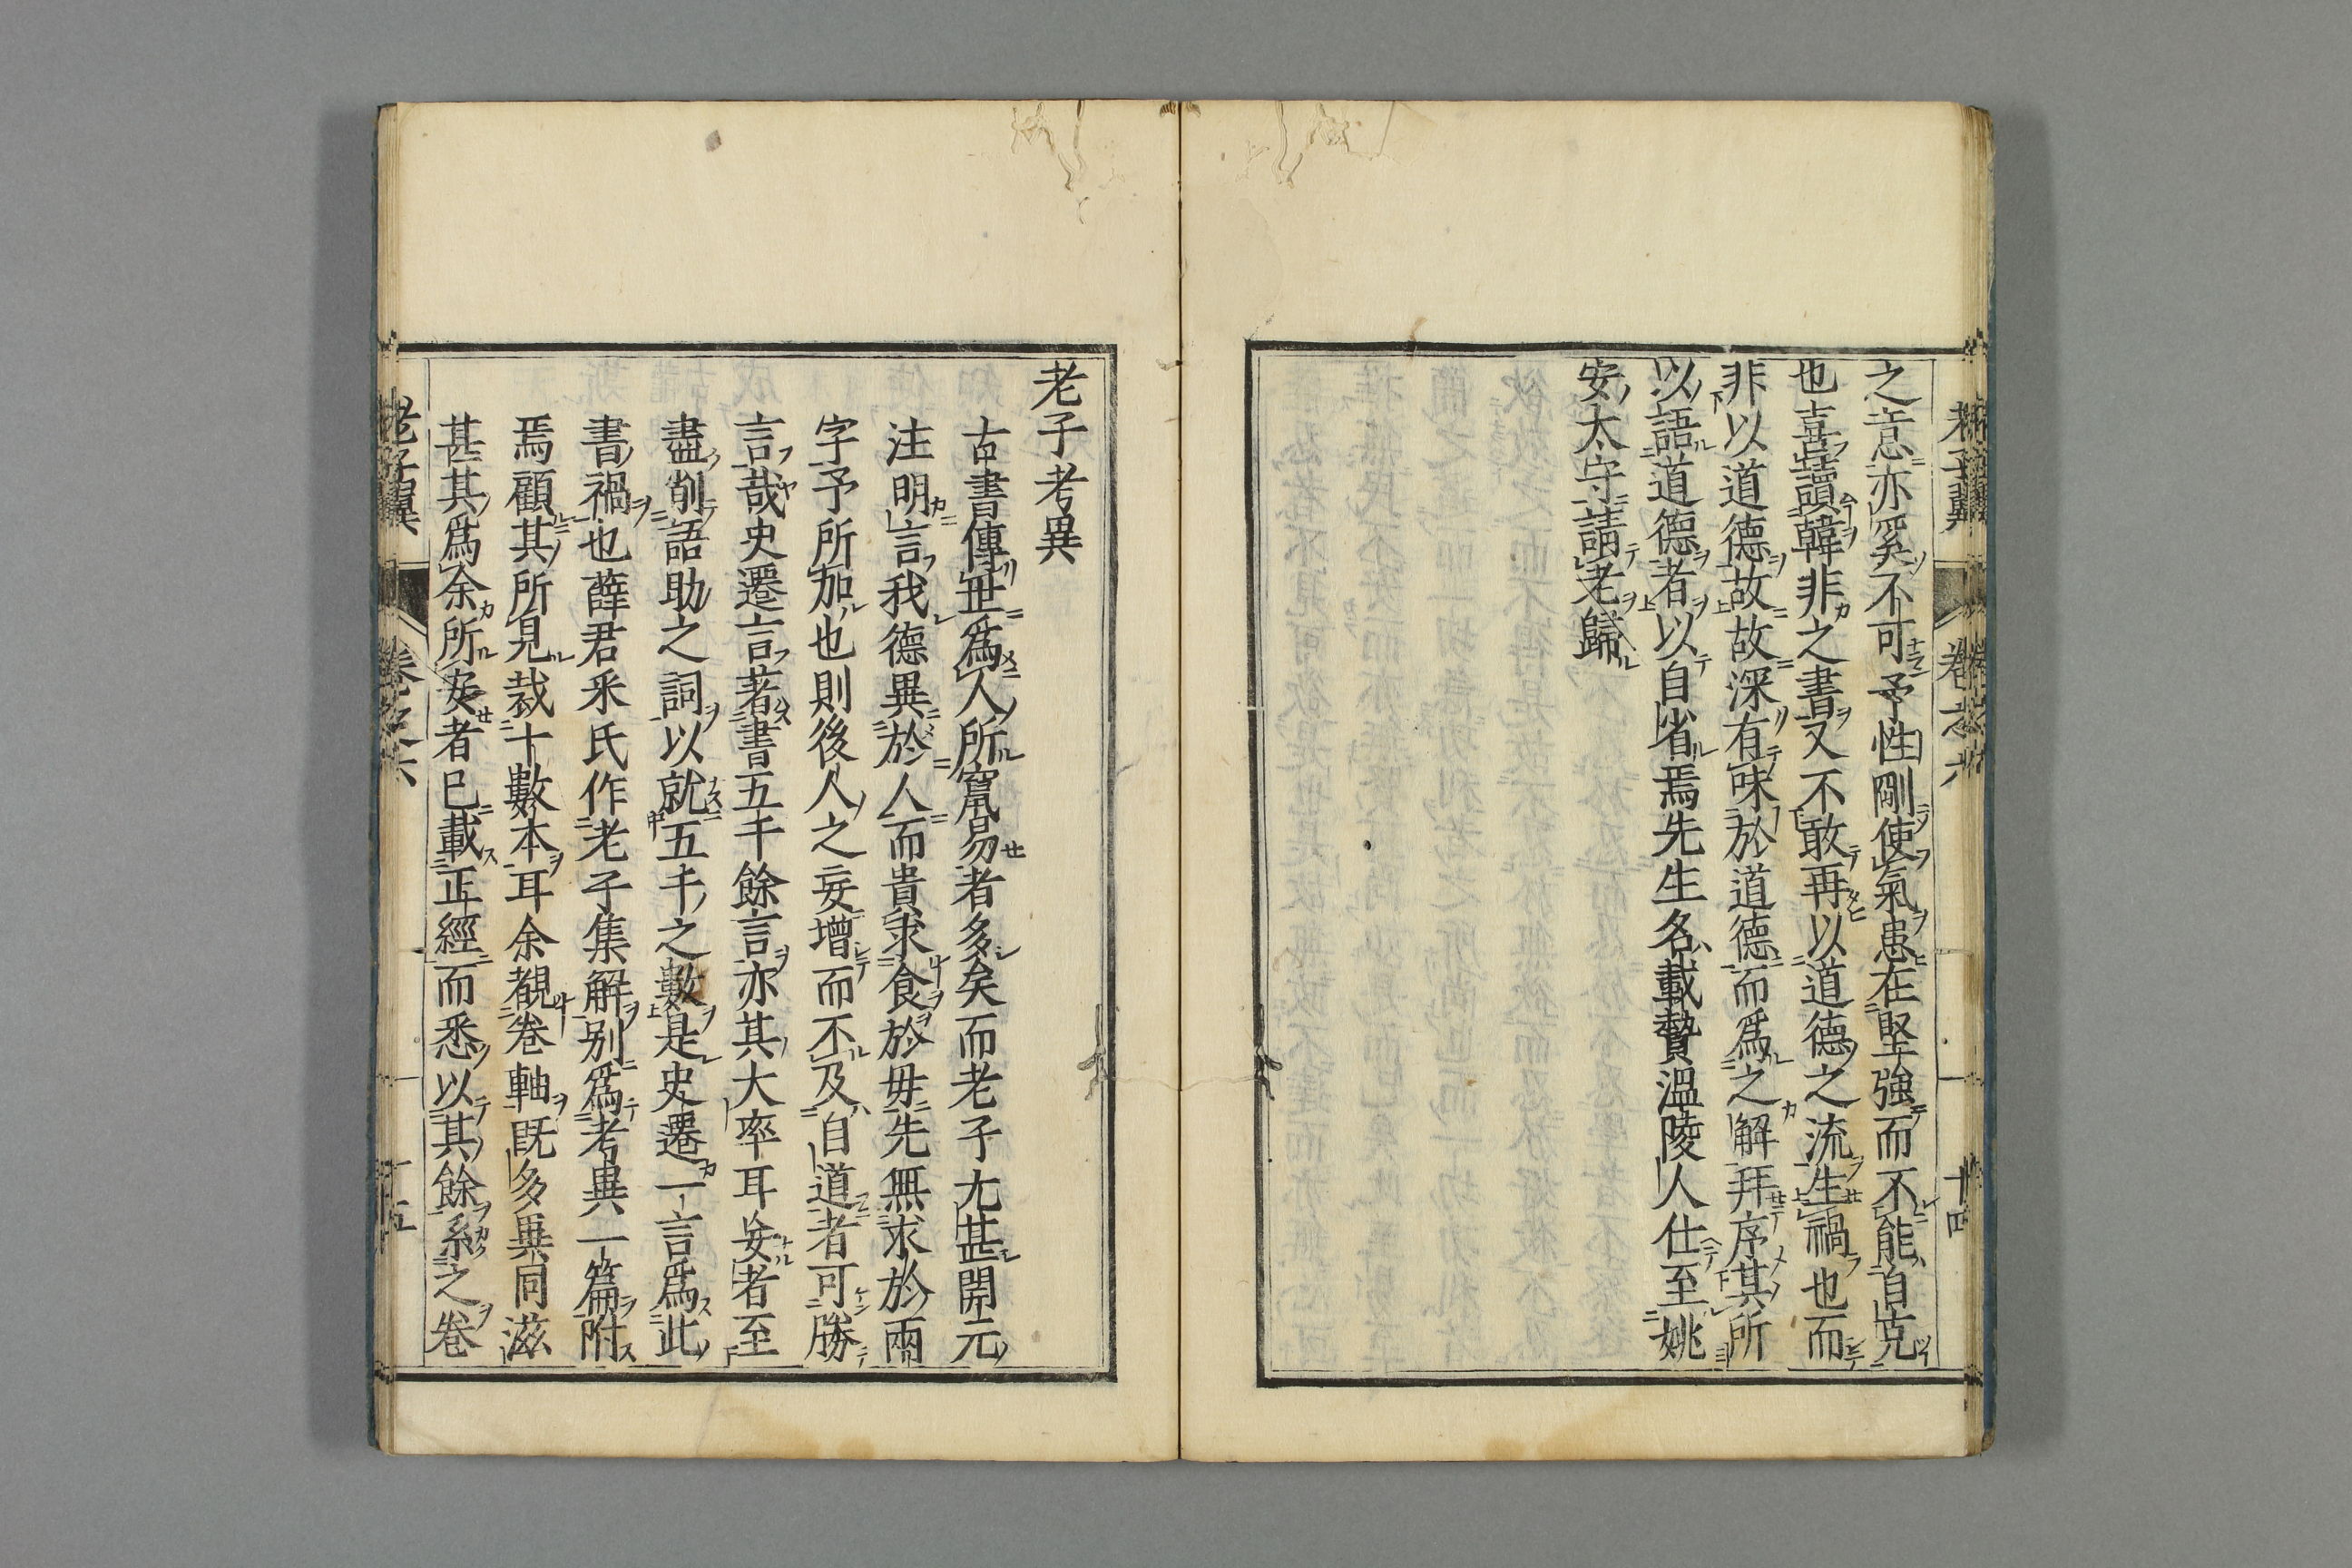 之意亦奚不可予性剛使氣患在堅強而不能自克
也喜讀韓非之書又不敢再以道德之流生禍也而
非以道德故故深有味於道德而爲之解拜序其所
以語道德者以自省焉先生名載贄溫陵人仕至姚
安太守請老歸
老子考異
古書傳世爲人所竄易者多矣而老子尢甚開元
注明言我德異於人而貴求食於毋先無求於兩
字予所加也則後人之妄增而不及自道者可勝
言哉史遷言著書五千餘言亦其大率耳妄者至
盡削語助之詞以就五千之數是史遷一言爲此
書禍也薛君釆氏作老子集解别爲考異一篇附
焉顧其所見裁十數本耳余覩卷軸旣多異同滋
甚其爲余所安者已載正經而悉以其餘系之卷
老子翼
卷之六
十五